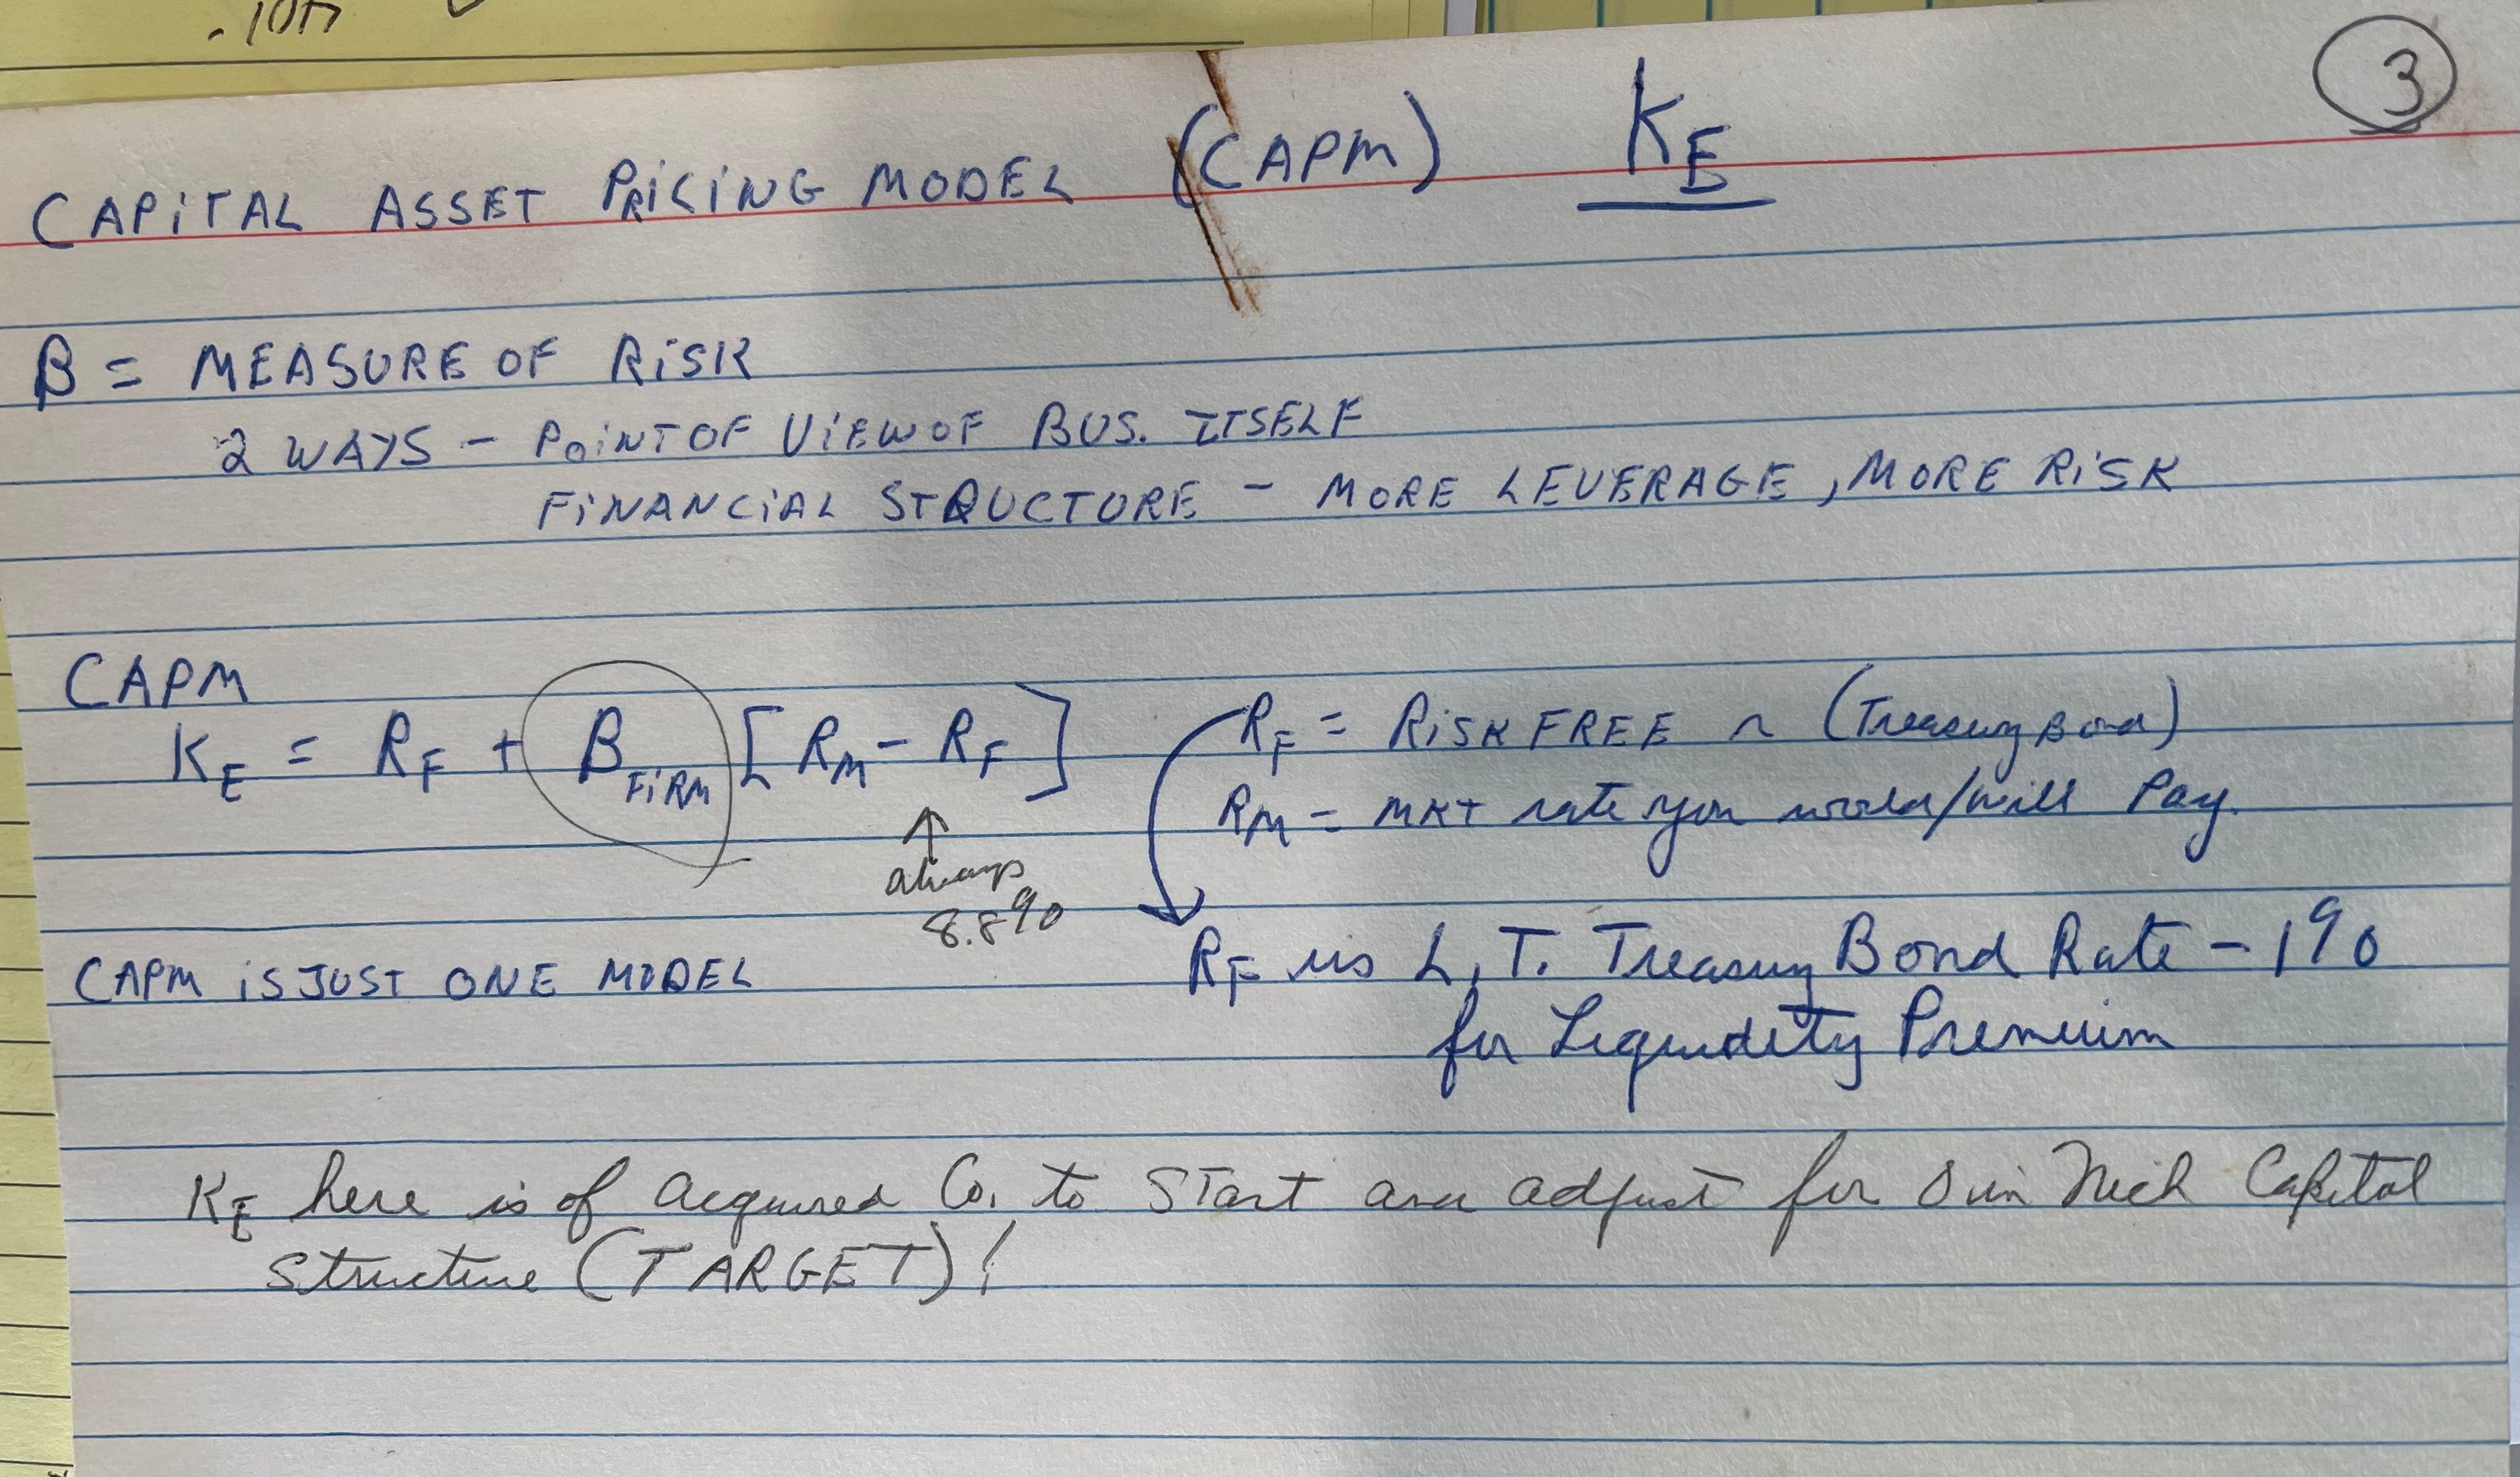 3
CAPITAL ASSET PRICING MODEL (CAPM) KE
β = MEASURE OF RISK
2 WAYS - POINT OF VIEW OF BUS. ITSELF
FINANCIAL STRUCTURE - MORE LEVERAGE, MORE RISK
CAPM
KE = RF + β FIRM [RM - RF]
always
8.8%
RF = RISK FREE ~ (Treasury Bond)
RM = MKT rate you would/will Pay.
CAPM IS JUST ONE MODEL
RF is L.T. Treasury Bond Rate - 1%
for Liquidity Premium
KE here is of acquired Co. to START and adjust for in Capital
Structure (TARGET)!